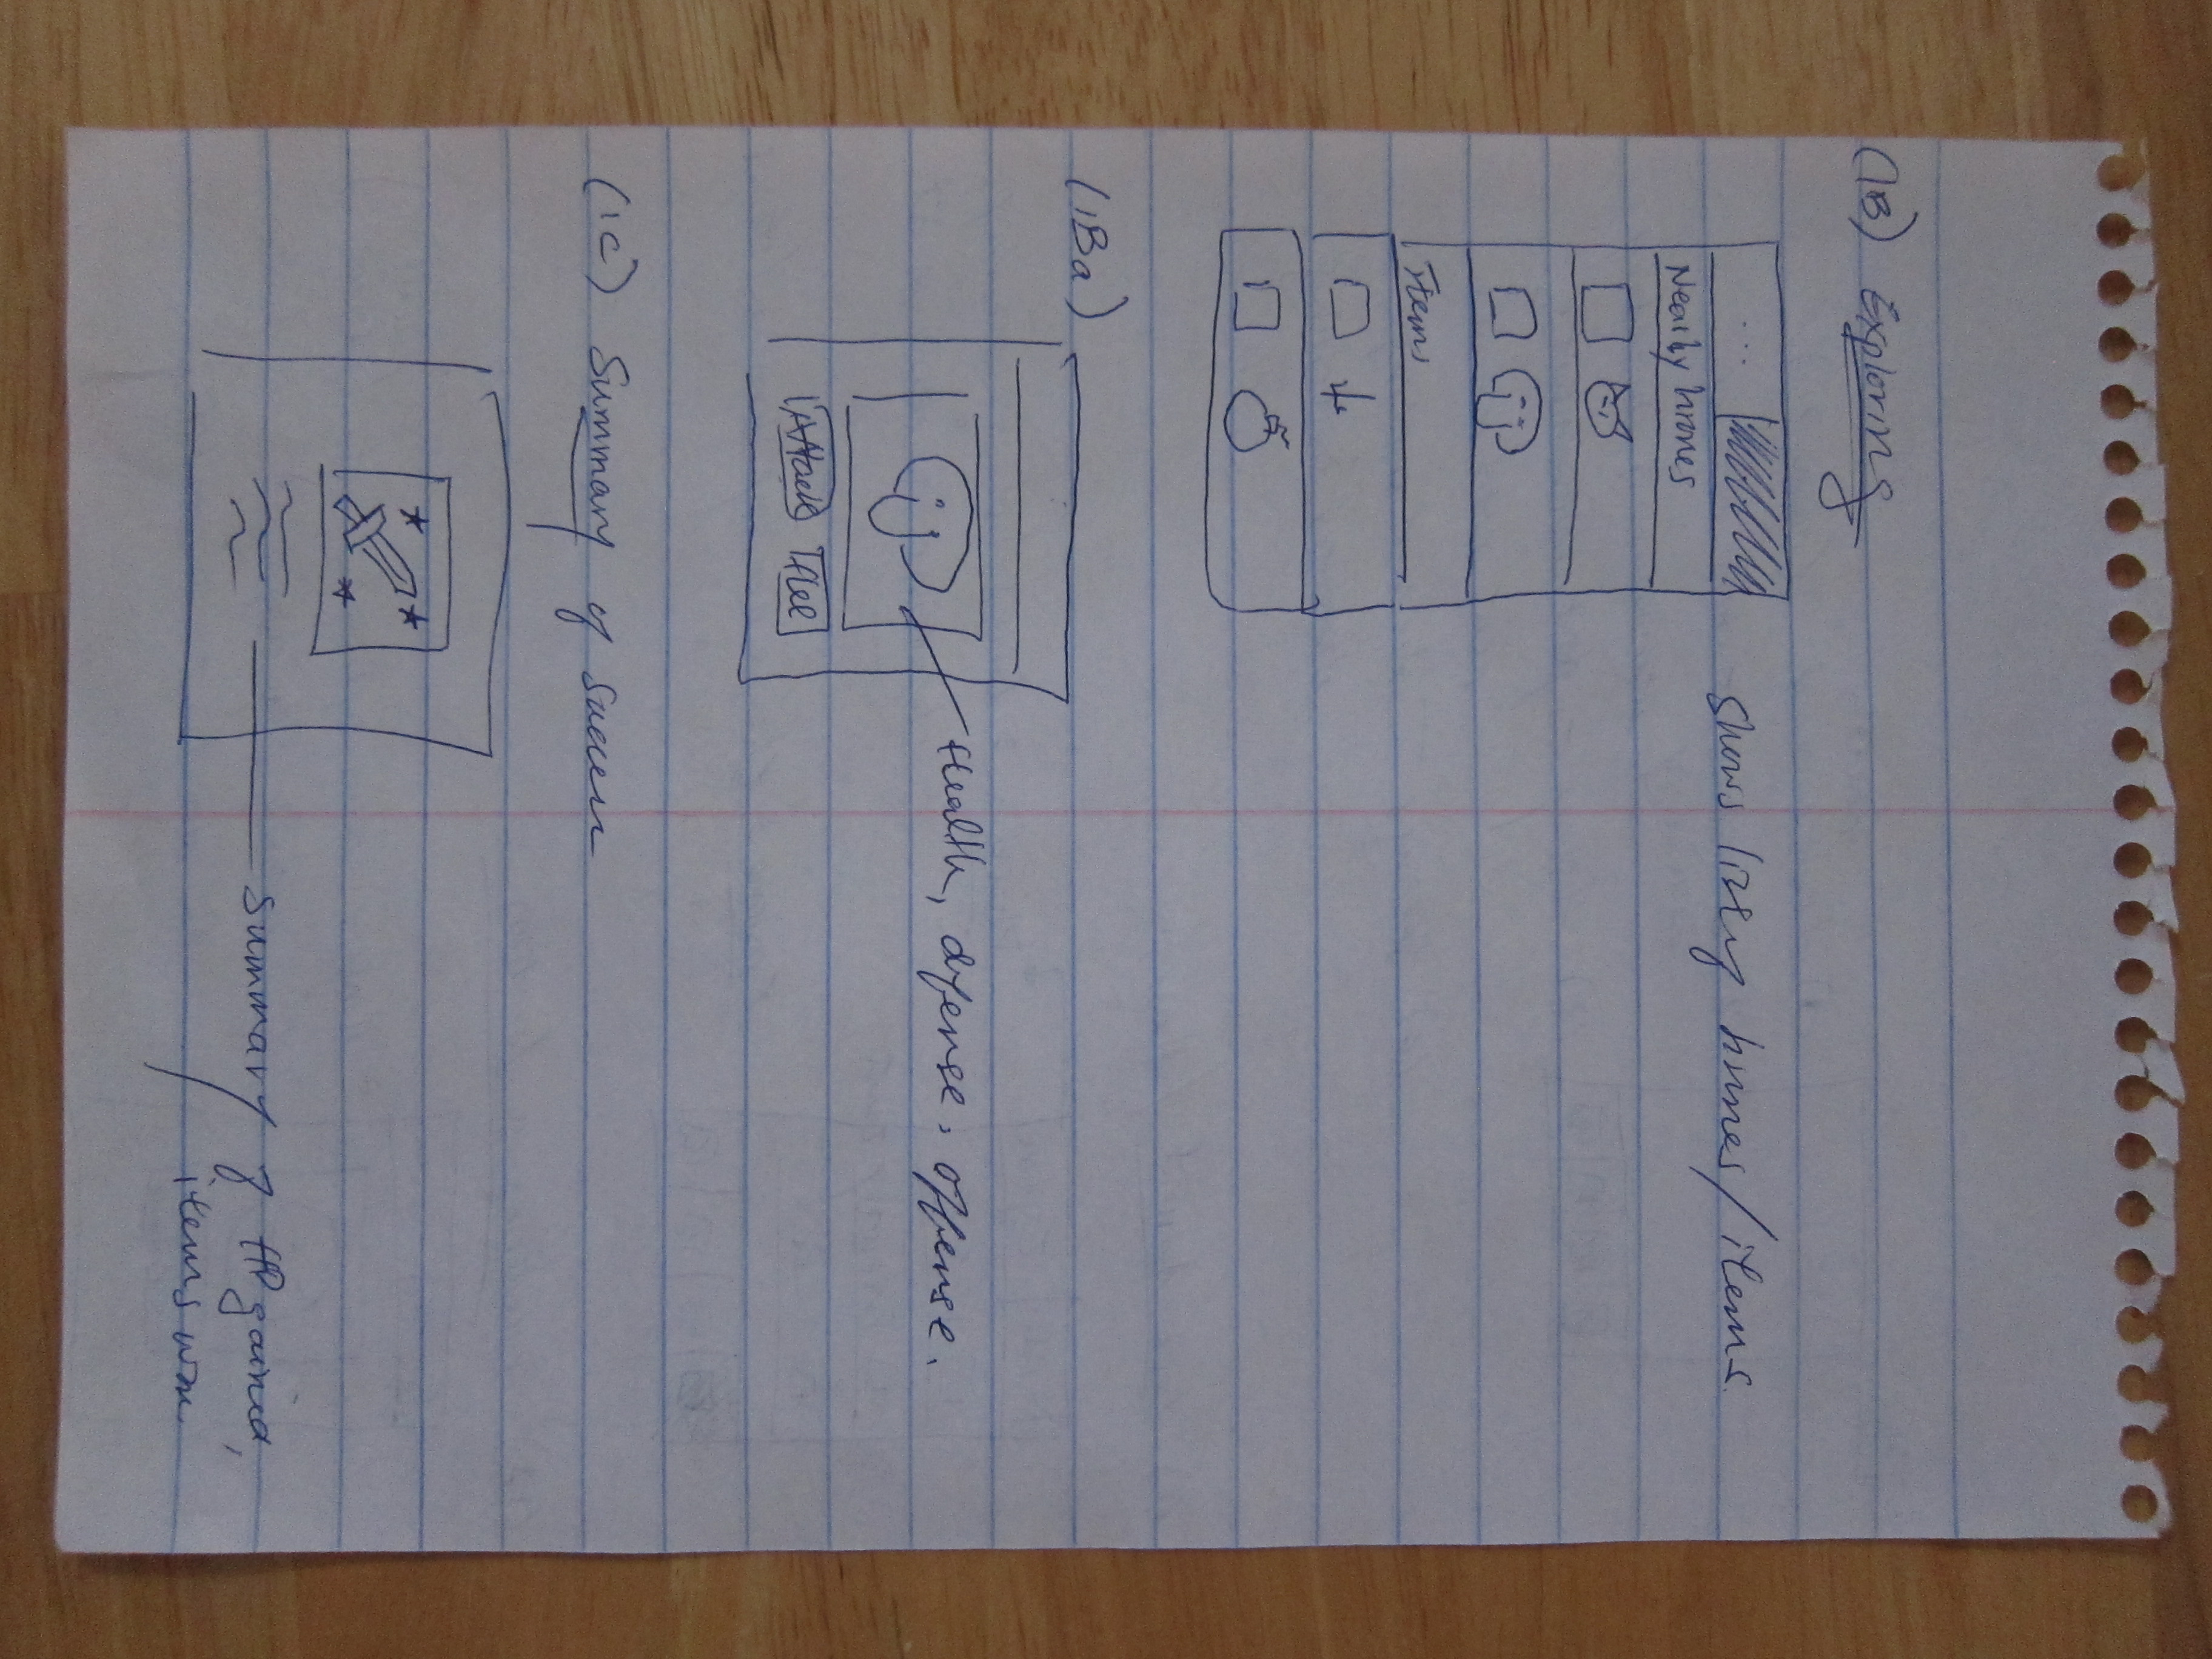 (1B) Exploring
...
Nearby heroes
Items
Shows likely heroes/items.
(1Ba)
Attack Flee
Health, defense, offense.
(1C) Summary of success
Summary of HP gained,
items won.